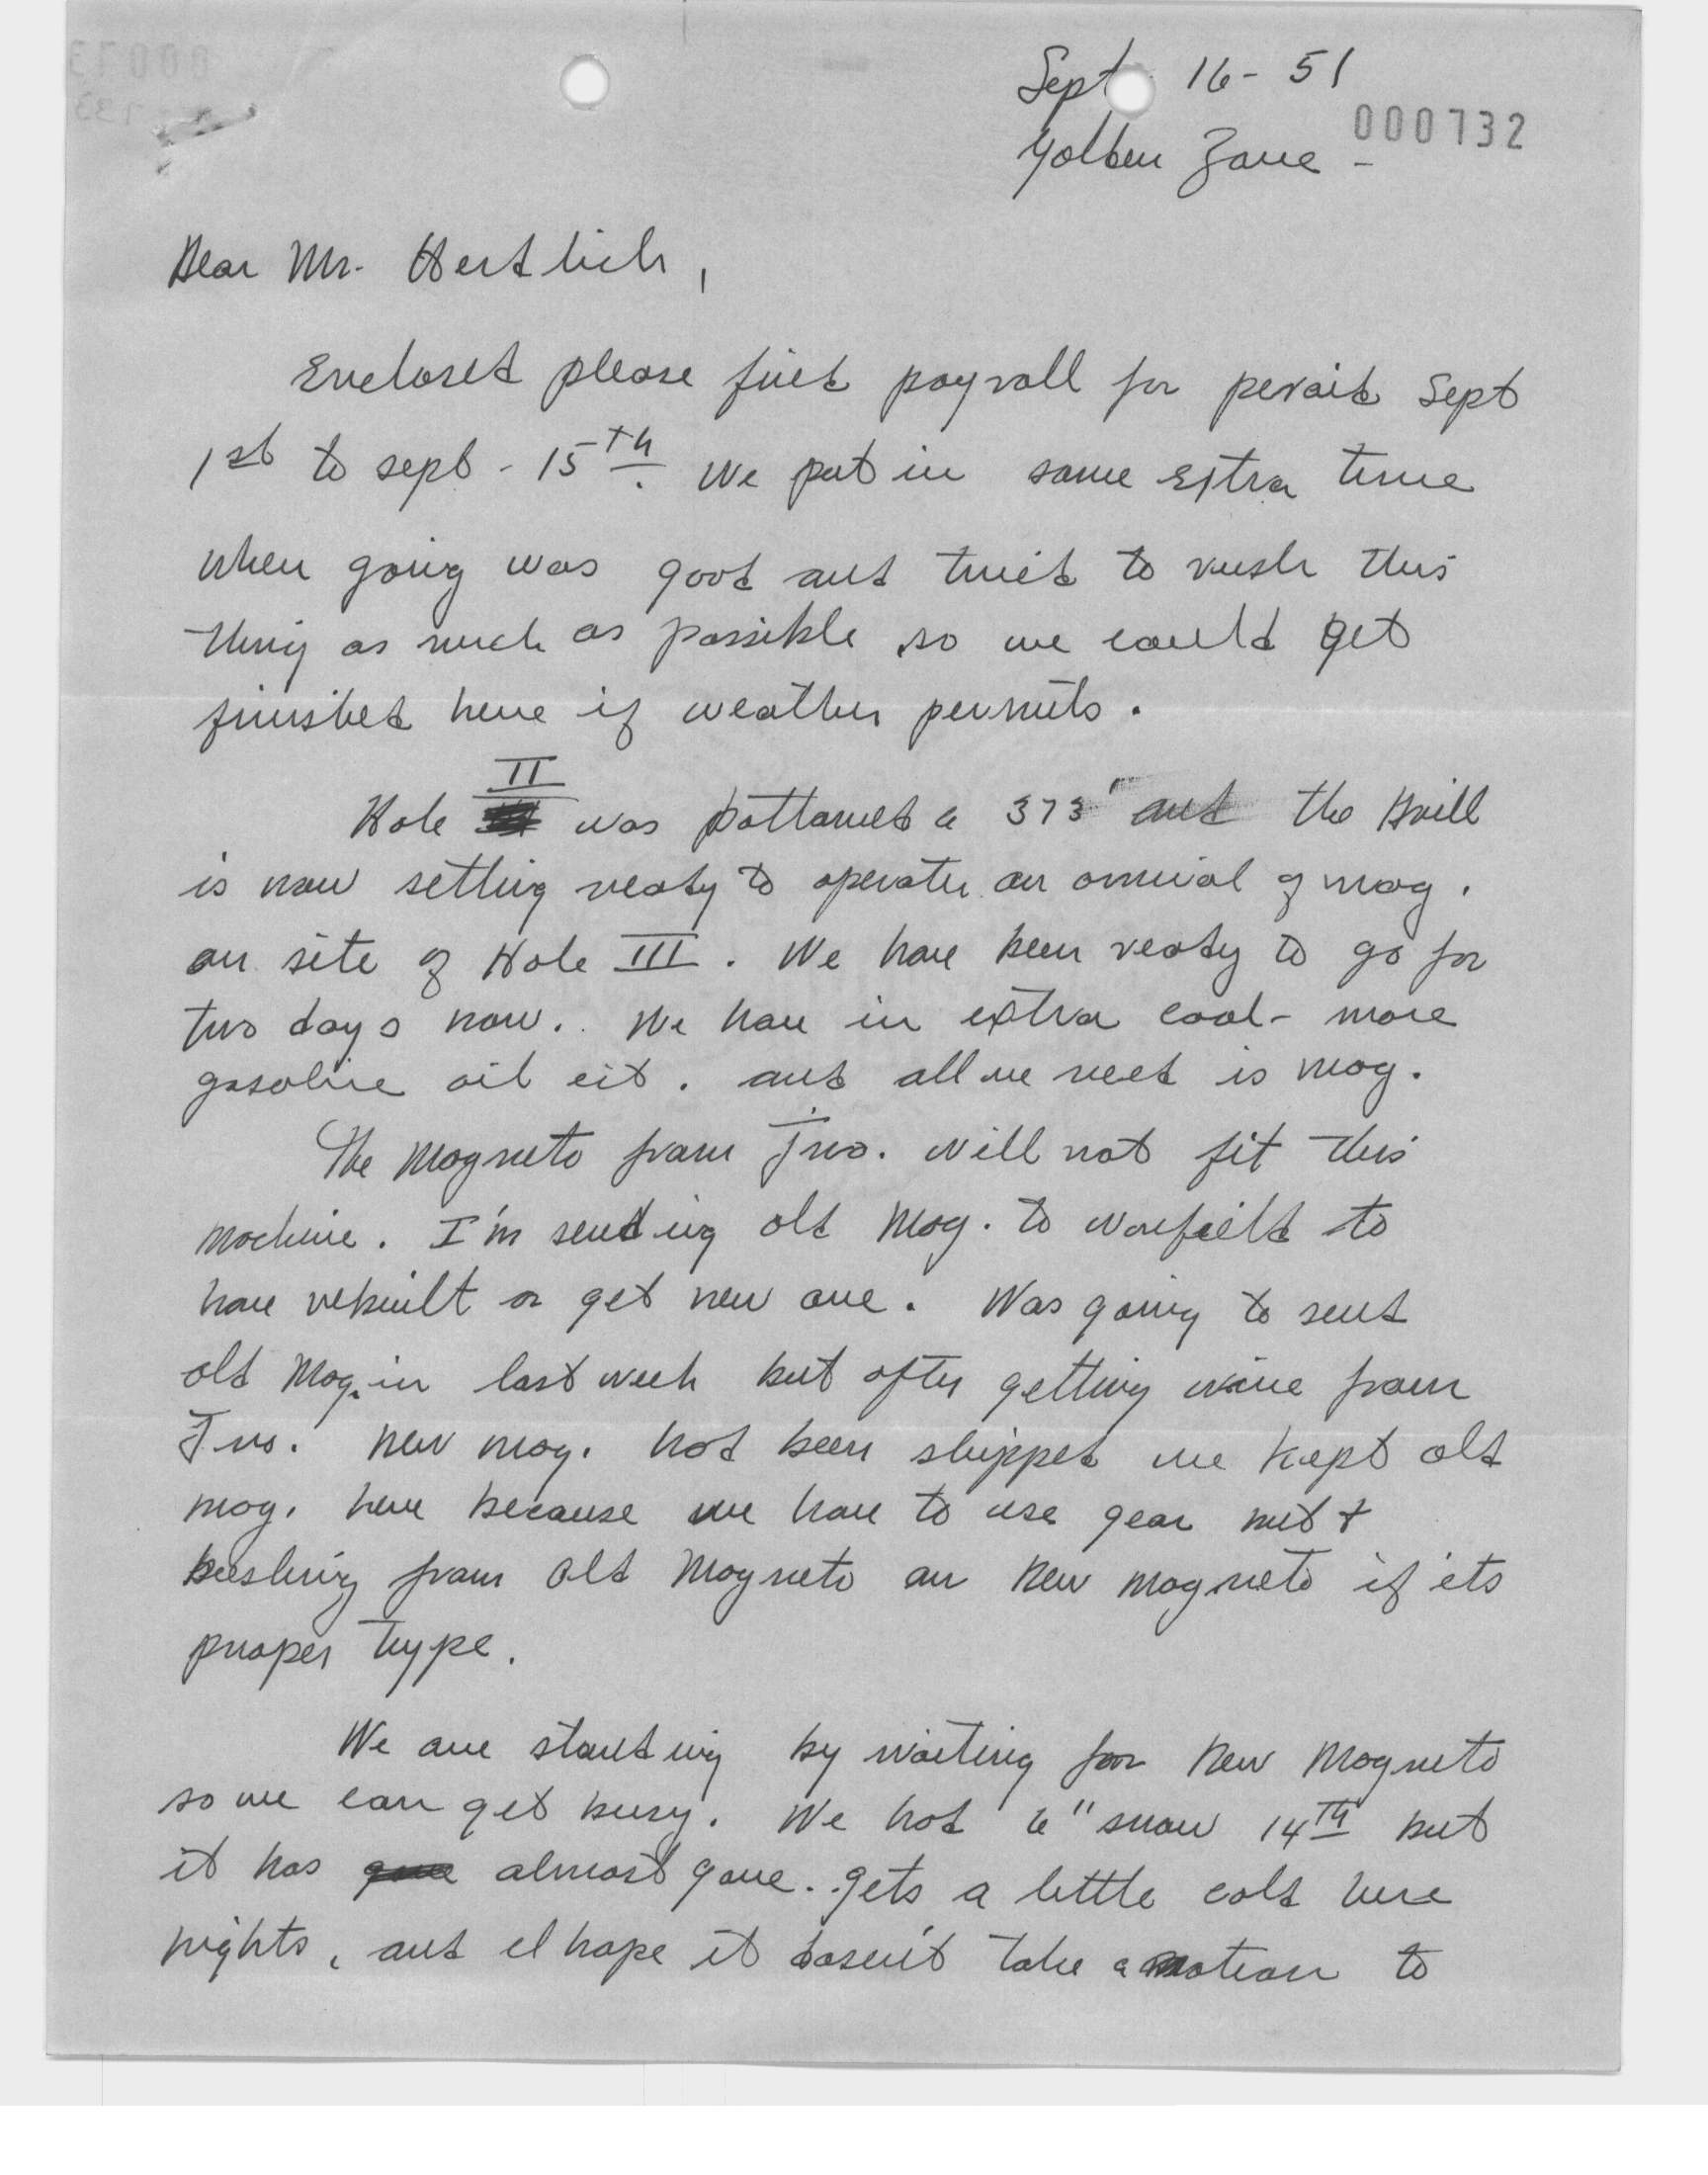 Sept 16 - 51
000732
Golden Zone -
Dear Mr. Hertlich,
Enclosed please find payroll for peroid Sept
1st to sept - 15th. We put in some Extra time
when going was good and tried to rush this
thing as much as possible so we could get
finished here if weather permits.
Hole II was bottomed @ 373' and the Drill
is now setting ready to operate on arrival of mag.
on site of Hole III. We have been ready to go for
two days now. We have in extra coal - more
gasoline oil ect. and all we need is mag.
The Magneto from Jno. will not fit this
machine. I'm sending old Mag. to to
have rebuilt or get new one. Was going to send
old Mag. in last week but after getting wire from
Jno. new mag. had been shipped we kept old
mag. here because we have to use gear nut &
bushing from old Magneto on New magneto if its
proper type.
We are standing by waiting for New Magneto
so we can get busy. We had 6" snow 14th but
it has almost gone. gets a little cold here
nights, and I hope it dosen't take a notion to